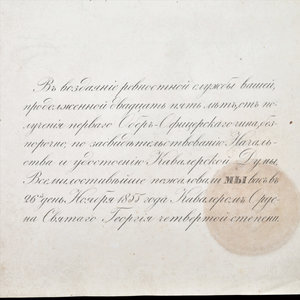 Въ воздаяніе ревностной службы вашей,
продолженной двадцать пять лѣтъ, отъ по-
лученія перваго Оберъ-Офицерскаго чина, без-
порочно, по засвидѣтельствованію Началь-
ства и удостоенію Кавалерской Думы,
Всемилостивѣйше пожаловали МЫ васъ въ
26й день Ноября 1855 года Кавалеромъ Орде-
на Святаго Георгія четвертой степени.